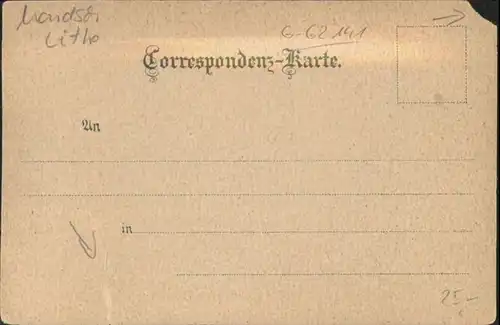 Litho
6-62141
Correspondenz-Karte.
An
in
25,-